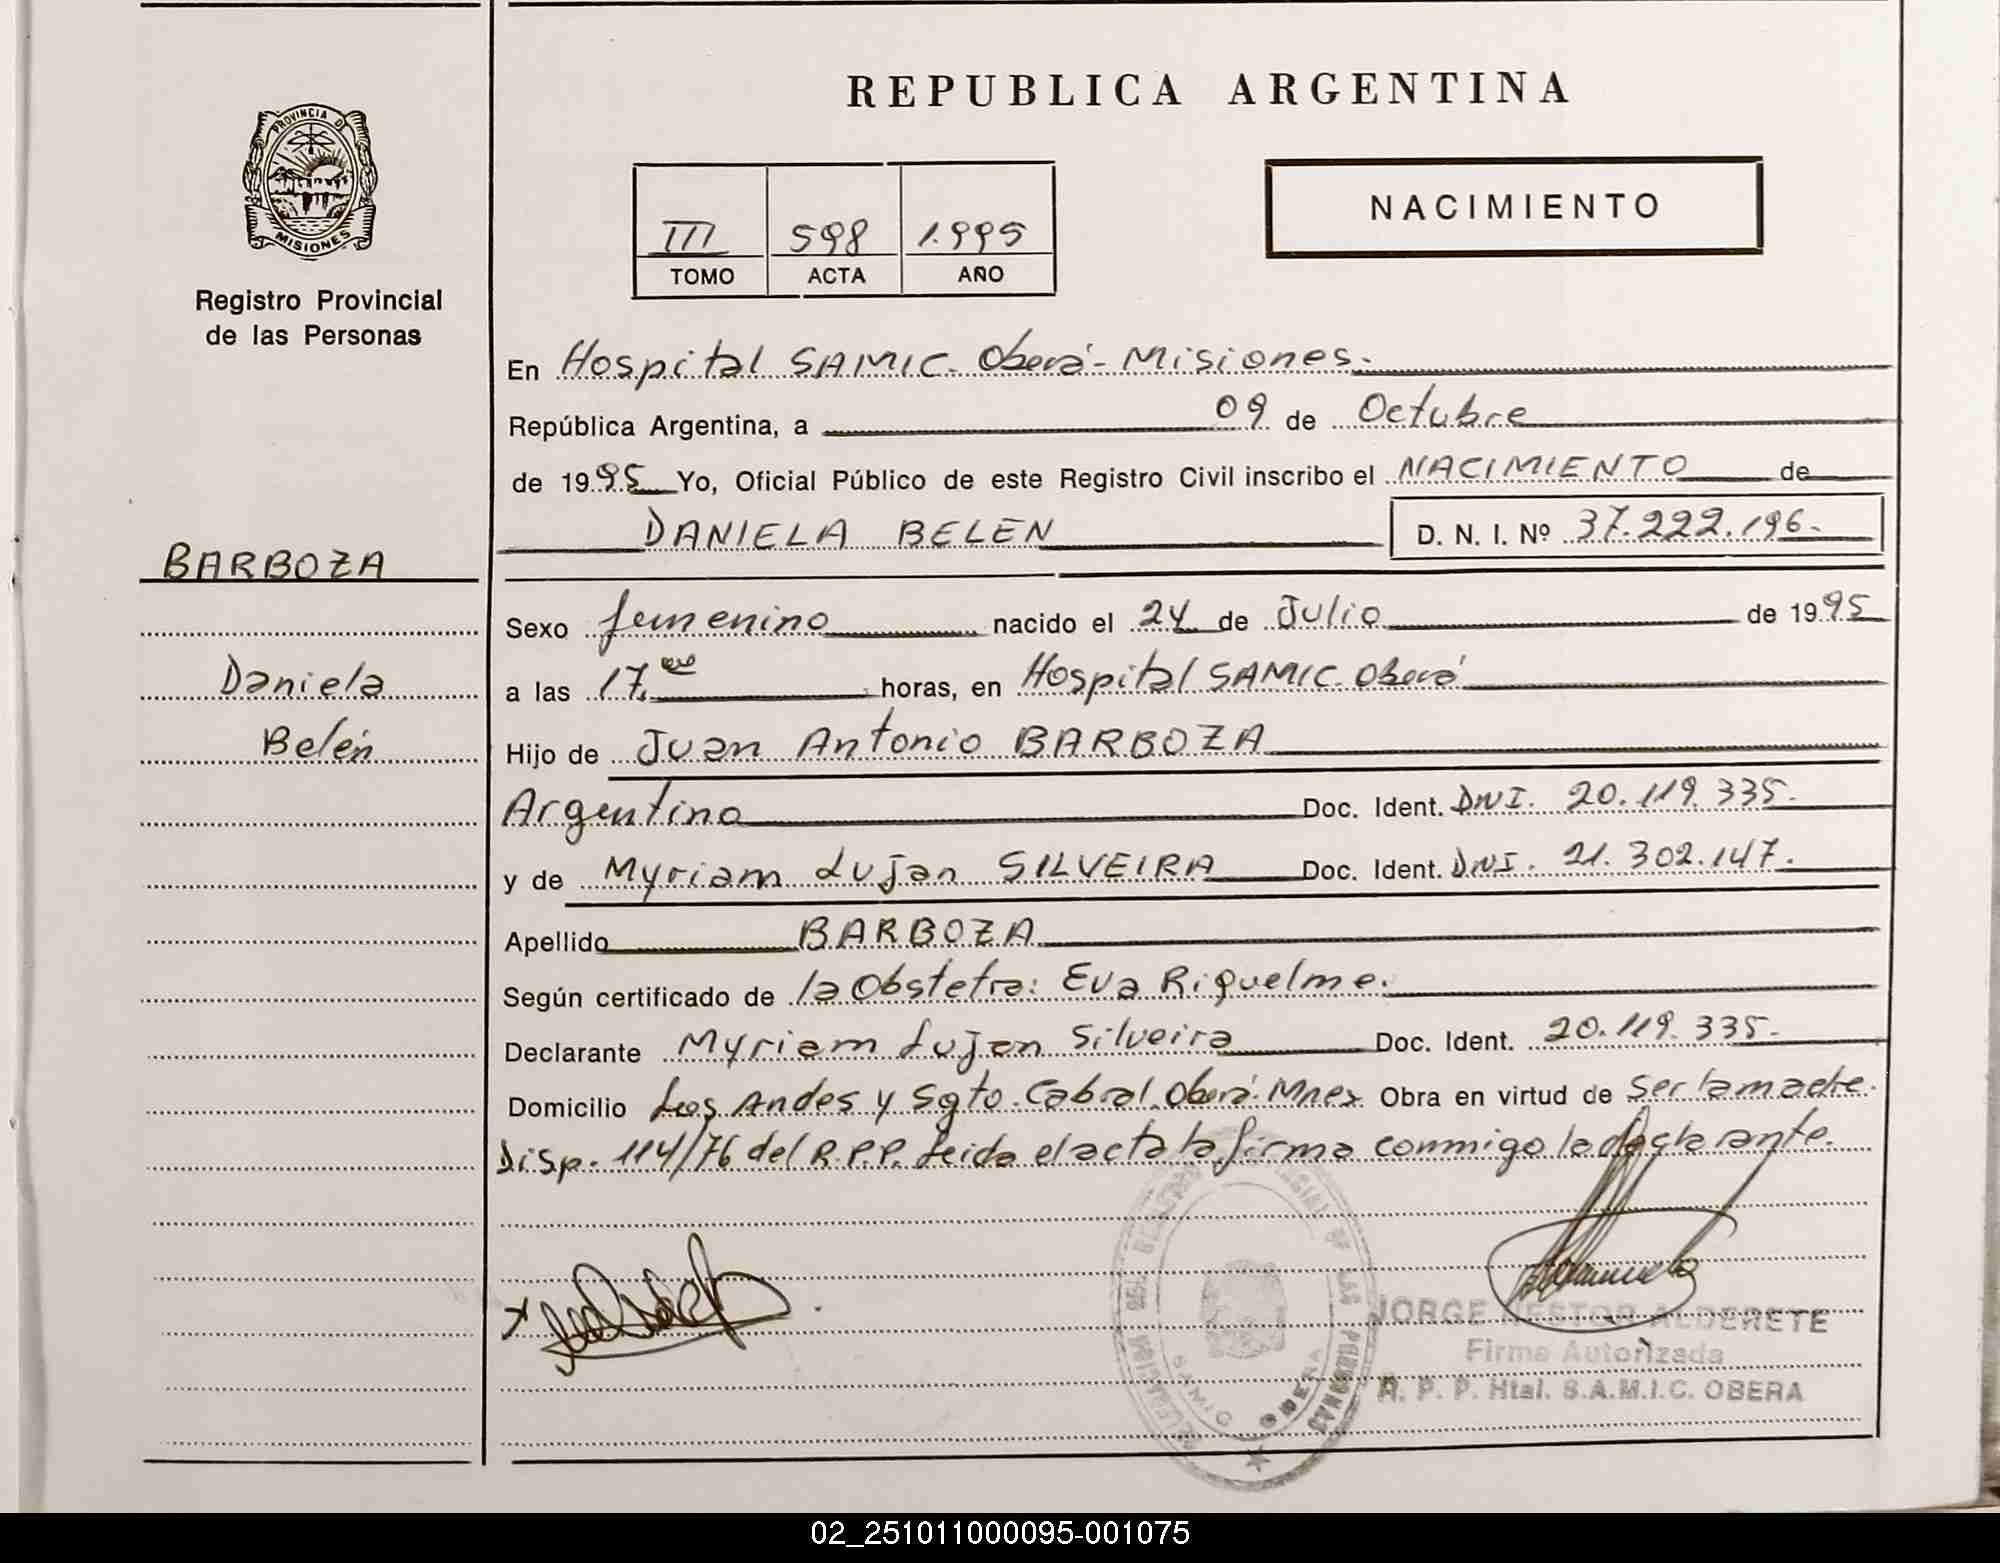 REPUBLICA ARGENTINA
PROVINCIA DE
MISIONES
Registro Provincial
de las Personas
NACIMIENTO
III 598 1.995
TOMO ACTA AÑO
En Hospital SAMIC - Oberá - Misiones.
República Argentina, a 09 de Octubre
de 1995 Yo, Oficial Público de este Registro Civil inscribo el NACIMIENTO de
DANIELA BELEN D. N. I. Nº 37.222.196.-
BARBOZA
Daniela
Belén
Sexo femenino nacido el 24 de Julio de 1995
a las 17. horas, en Hospital SAMIC. Oberá
Hijo de Juan Antonio BARBOZA
Argentino Doc. Ident. DNI. 20.119.335.-
y de Myriam Lujan SILVEIRA Doc. Ident. DNI. 21.302.147.-
Apellido BARBOZA
Según certificado de la Obstetra: Eva Riquelme.
Declarante Myriam Lujan Silveira Doc. Ident. 20.119.335.-
Domicilio Los Andes y Sgto. Cabral. Oberá. Mnes Obra en virtud de Ser la madre.
Disp. 114/76 del R.P.P. Leida el acta la firma conmigo la declarante.
JORGE NESTOR ALDERETE
Firma Autorizada
R. P. P. Htal. S.A.M.I.C. OBERA
OBERA
02_251011000095-001075